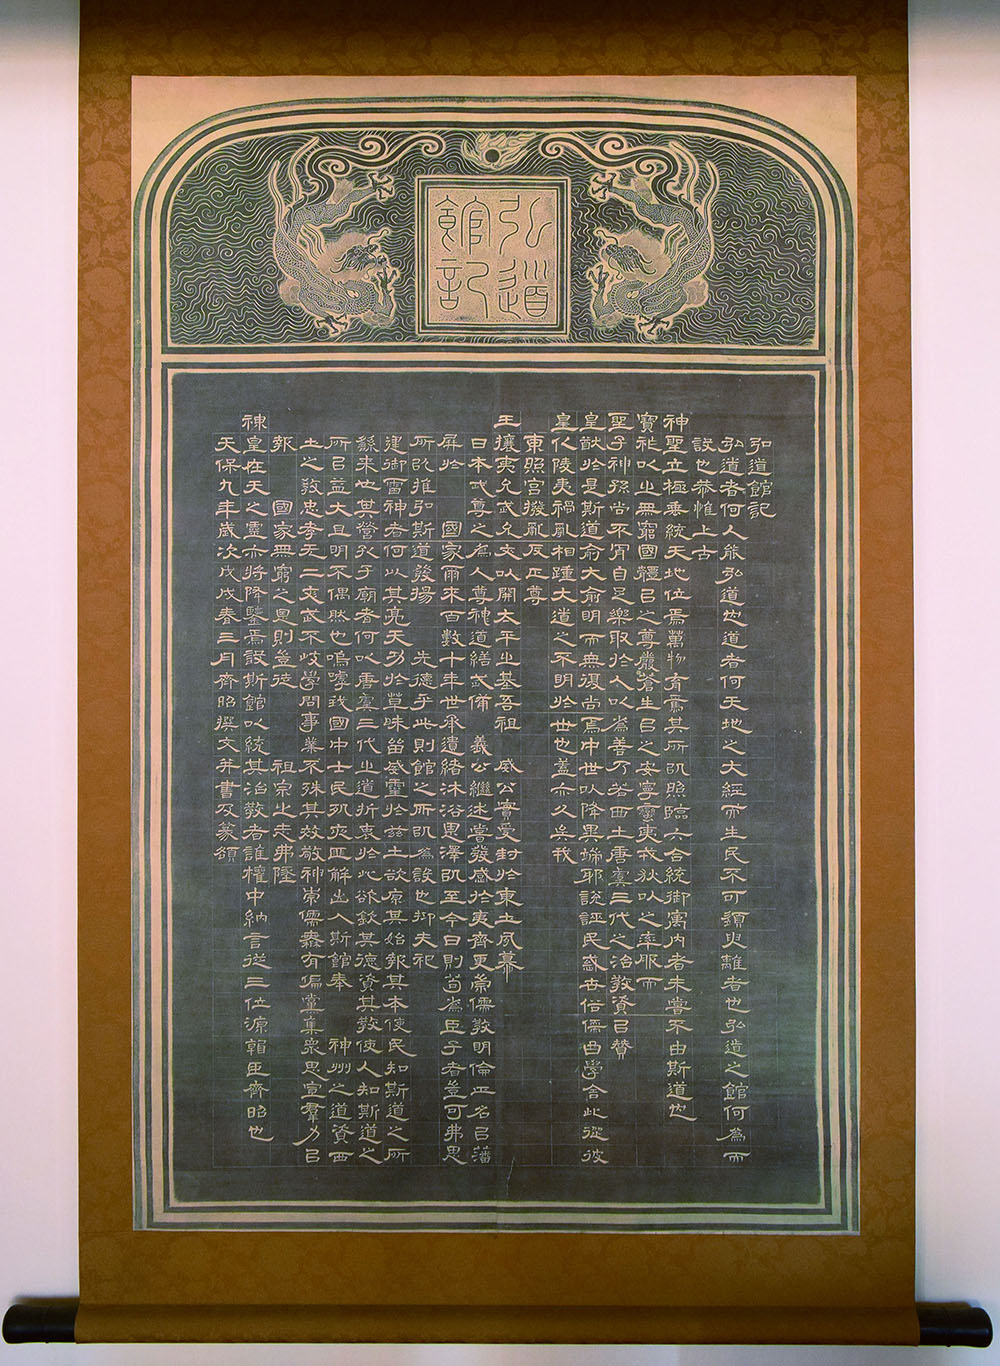 弘道
館記
弘道館記
弘道者何人能弘道也道者何天地之大經而生民不可須臾離者也弘道之館何爲而
設也恭惟上古
神聖立極垂統天地位焉萬物育焉其所以照臨六合統御寓內者未嘗不由斯道也
寶祚以之無窮國體以之尊嚴蒼生以之安寧蠻夷戎狄以之率服而
聖子神孫尚不肯自足樂取於人以爲善乃若西土唐虞三代之治教資以贊
皇猷於是斯道兪大兪明而無復尚焉中世以降異端邪說誣民惑世俗儒曲學舍此從彼
皇化陵夷禍亂相踵大道之不明於世也蓋亦久矣我
東照宮撥亂反正尊
王攘夷允武允文以開太平之基吾祖 威公實受封於東土夙慕
日本武尊之爲人尊神道繕武備 義公繼述嘗發感於夷齊更崇儒教明倫正名以藩
屏於 國家爾來百數十年世承遺緒沐浴恩澤以至今日則苟爲臣子者豈可弗思
所以推弘斯道發揚 先德乎此則館之所以爲設也抑夫祀
建御雷神者何以其亮天功於草昧留威靈於茲土欲原其始報其本使民知斯道之所
繇來也其營孔子廟者何以唐虞三代之道折衷於此欲欽其德資其教使人知斯道之
所以益大且明不偶然也嗚呼我國中士民夙夜匪解出入斯館奉 神州之道資西
土之教忠孝无二文武不岐學問事業不殊其效敬神崇儒無有偏黨集衆思宣羣力以
報 國家無窮之恩則豈徒 祖宗之志弗墜
神皇在天之靈亦將降鑒焉設斯館以統其治教者誰權中納言從三位源朝臣齊昭也
天保九年歲次戊戌春三月齊昭撰文并書及篆額